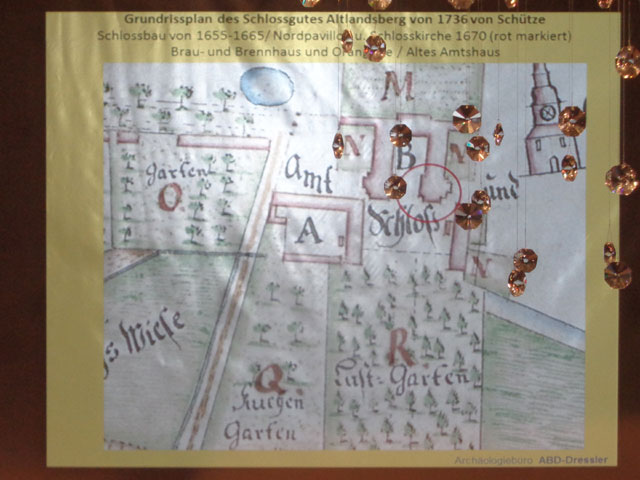 Grundrissplan des Schlossgutes Altlandsberg von 1736 von Schütze
Schlossbau von 1655-1665/ Nordpavillon u. Schlosskirche 1670 (rot markiert)
Brau- und Brennhaus und / Altes Amtshaus
M
N
B
N
Garten
O
Amt
und
Schloß
A
N
Wiese
R
Lust-Garten
Q
Kuchen
Garten
Archäologiebüro ABD-Dressler